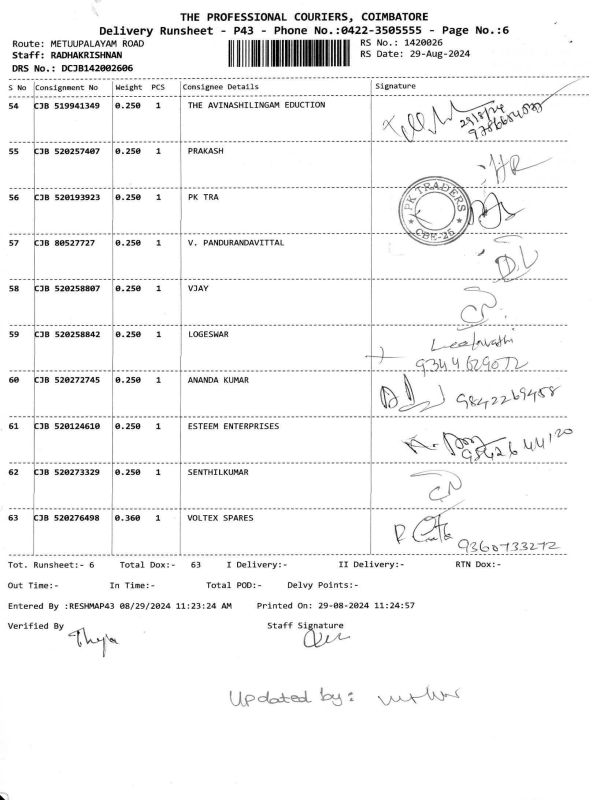 THE PROFESSIONAL COURIERS, COIMBATORE
Delivery Runsheet - P43 - Phone No.:0422-3505555 - Page No.:6
Route: METUUPALAYAM ROAD RS No.: 1420026
Staff: RADHAKRISHNAN RS Date: 29-Aug-2024
DRS No.: DCJB142002606
S No Consignment No Weight PCS Consignee Details Signature
54 CJB 519941349 0.250 1 THE AVINASHILINGAM EDUCTION
29/8/24
55 CJB 520257407 0.250 1 PRAKASH
56 CJB 520193923 0.250 1 PK TRA
PK TRADERS
CBE-25
57 CJB 80527727 0.250 1 V. PANDURANDAVITTAL
58 CJB 520258807 0.250 1 VJAY
59 CJB 520258842 0.250 1 LOGESWAR
9344629072
60 CJB 520272745 0.250 1 ANANDA KUMAR
9842269458
61 CJB 520124610 0.250 1 ESTEEM ENTERPRISES
9842644120
62 CJB 520273329 0.250 1 SENTHILKUMAR
63 CJB 520276498 0.360 1 VOLTEX SPARES
9360733272
Tot. Runsheet:- 6 Total Dox:- 63 I Delivery:- II Delivery:- RTN Dox:-
Out Time:- In Time:- Total POD:- Delvy Points:-
Entered By :RESHMAP43 08/29/2024 11:23:24 AM Printed On: 29-08-2024 11:24:57
Verified By Staff Signature
Updated by: